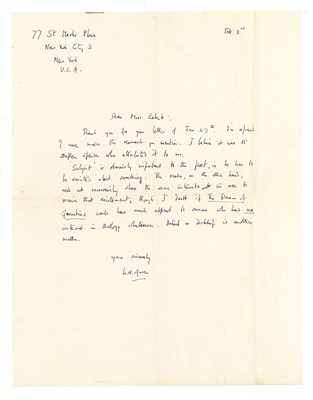 77 St Marks Place
Feb 8th
New York City 3
New York
U.S.A.
Dear Miss Roberts:
Thank you for your letter of Jan 27th. I'm afraid
I never made the remarks you mention. I believe it was Dr
Stephen Spender who attributed it to me.
Subject is obviously important to the poet, in he has to
be excited about something. The reader, on the other hand,
need not necessarily share the same interests in order to
receive that excitement, though I doubt if The Dream of
Gerontius could have much appeal to someone who had no
interest in theology whatsoever. Belief or disbelief is another
matter.
yours sincerely
W.H. Auden